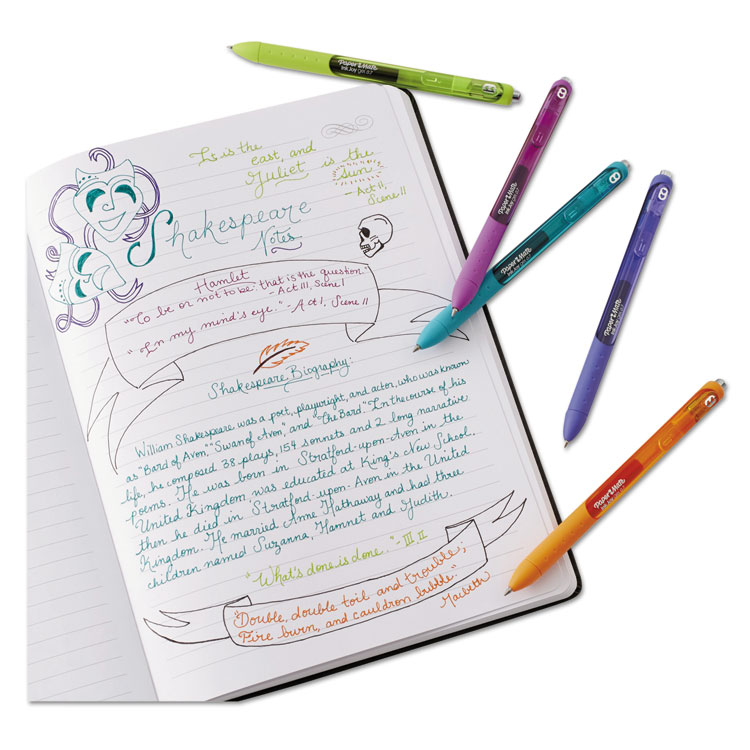 It is the
east, and
Juliet is the
sun
- Act II,
Scene II
Shakespeare
Notes
Hamlet
"To be or not to be: that is the question."
- Act III, Scene I
"In my mind's eye." - Act I, Scene II
Shakespeare Biography:
William Shakespeare was a poet, playwright, and actor, who was known
as "Bard of Avon," "Swan of Avon", and "The Bard". In the course of his
life, he composed 38 plays, 154 sonnets and 2 long narrative
poems. He was born in Stratford-upon-Avon in the
United Kingdom, was educated at King's New School,
then he died in Stratford-upon-Avon in the United
Kingdom. He married Anne Hathaway and had three
children named Suzanna, Hamnet and Judith.
"What's done is done." - III II
"Double, double toil and trouble;
Fire burn, and cauldron bubble."
Macbeth
Paper Mate
InkJoy gel 0.7
Paper Mate
InkJoy gel 0.7
Paper Mate
InkJoy gel 0.7
Paper Mate
InkJoy gel 0.7
Paper Mate
InkJoy gel 0.7